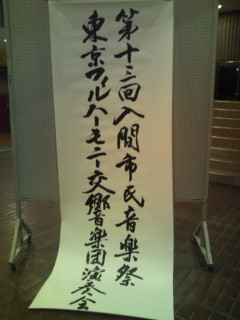 第十三回入間市民音樂祭
東京フィルハーモニー交響音楽団演奏会